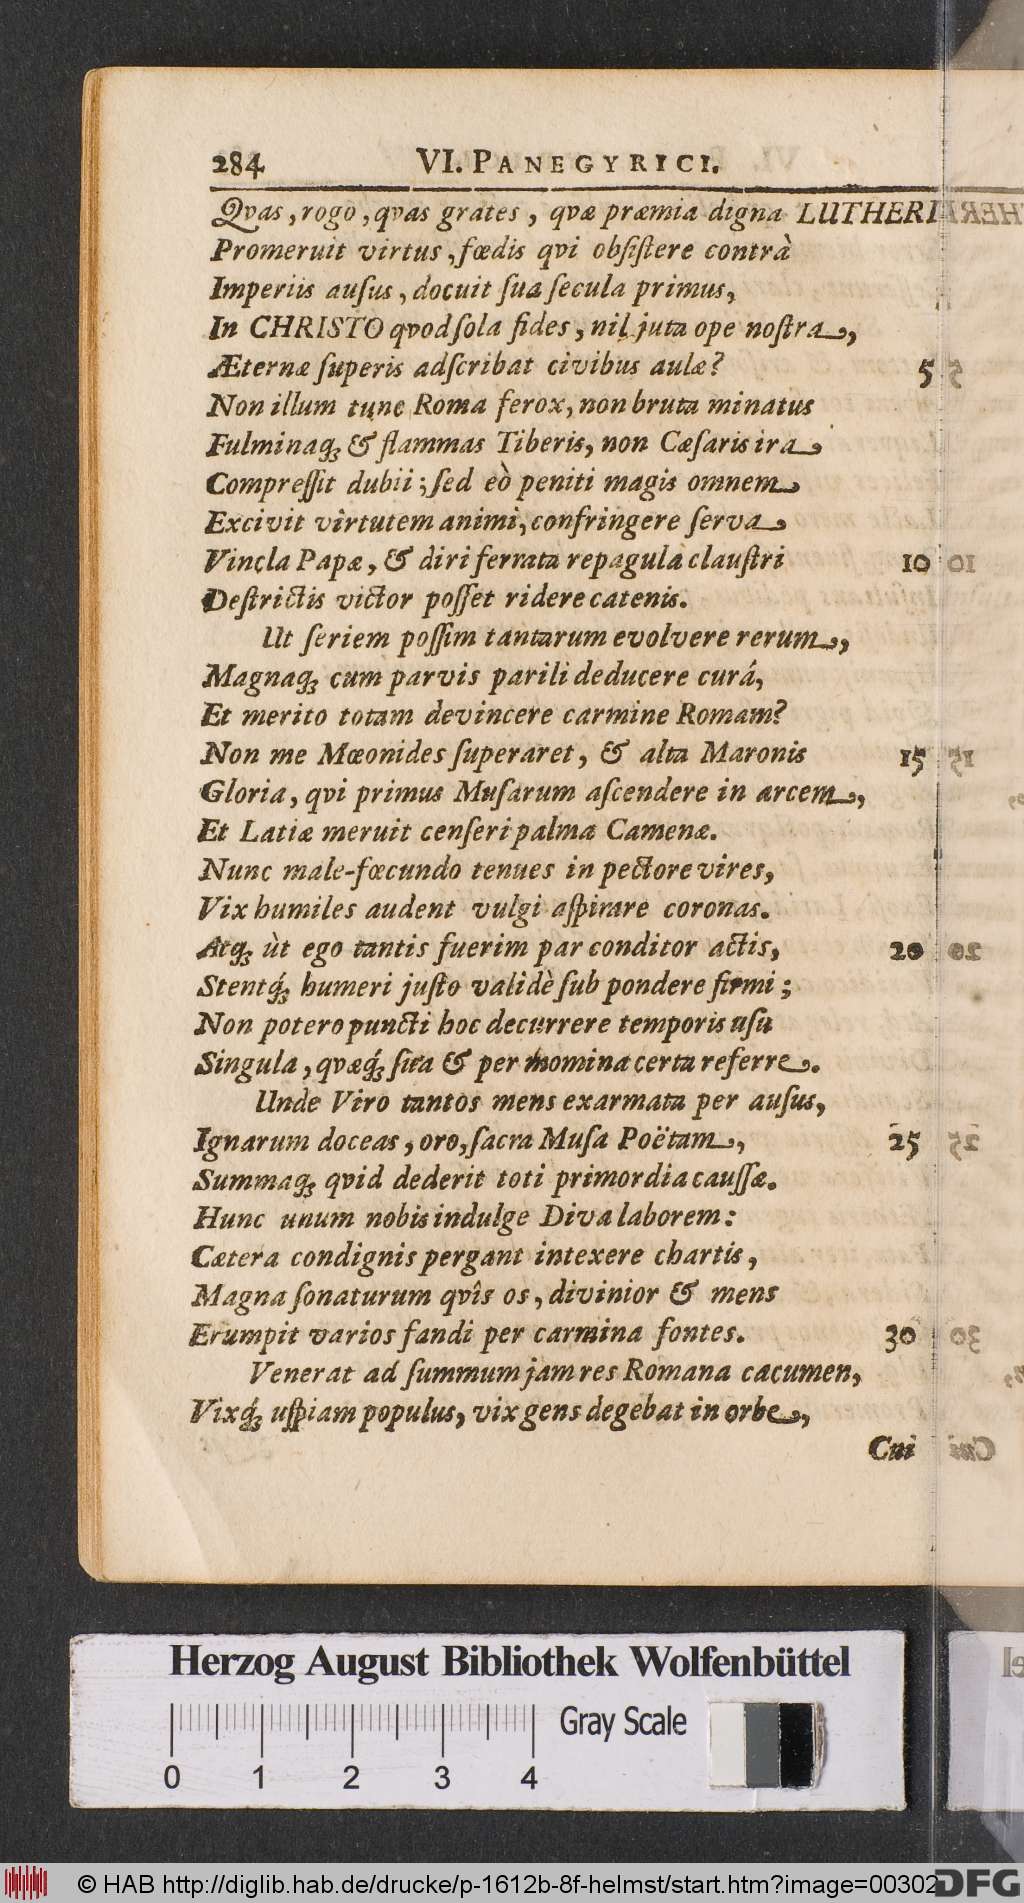 284 VI. PANEGYRICI.
Qvas, rogo, qvas grates, qvæ præmia digna LUTHERI
Promeruit virtus, fœdis qvi obsistere contrà
Imperiis ausus, docuit sua secula primus,
In CHRISTO qvod sola fides, nil juta ope nostra,
Æternæ superis adscribat civibus aulæ? 5
Non illum tunc Roma ferox, non bruta minatus
Fulminaq; & flammas Tiberis, non Cæsaris ira
Compressit dubii; sed eò peniti magis omnem
Excivit virtutem animi, confringere serva
Vincla Papæ, & diri ferrata repagula claustri 10
Destrictis victor posset ridere catenis.
Ut seriem possim tantarum evolvere rerum,
Magnaq; cum parvis parili deducere curá,
Et merito totam devincere carmine Romam?
Non me Mœonides superaret, & alta Maronis 15
Gloria, qvi primus Musarum ascendere in arcem,
Et Latiæ meruit censeri palma Camenæ.
Nunc male-fœcundo tenues in pectore vires,
Vix humiles audent vulgi aspirare coronas.
Atq; ùt ego tantis fuerim par conditor actis, 20
Stentq́; humeri justo validè sub pondere firmi;
Non potero puncti hoc decurrere temporis usu
Singula, qvæq́; sua & per momina certa referre.
Unde Viro tantos mens exarmata per ausus,
Ignarum doceas, oro, sacra Musa Poëtam, 25
Summaq; qvid dederit toti primordia caussæ.
Hunc unum nobis indulge Diva laborem:
Cætera condignis pergant intexere chartis,
Magna sonaturum qvîs os, divinior & mens
Erumpit varios fandi per carmina fontes. 30
Venerat ad summum jam res Romana cacumen,
Vixq́; uspiam populus, vix gens degebat in orbe,
Cui
Herzog August Bibliothek Wolfenbüttel
Gray Scale
0 1 2 3 4
© HAB http://diglib.hab.de/drucke/p-1612b-8f-helmst/start.htm?image=00302
DFG